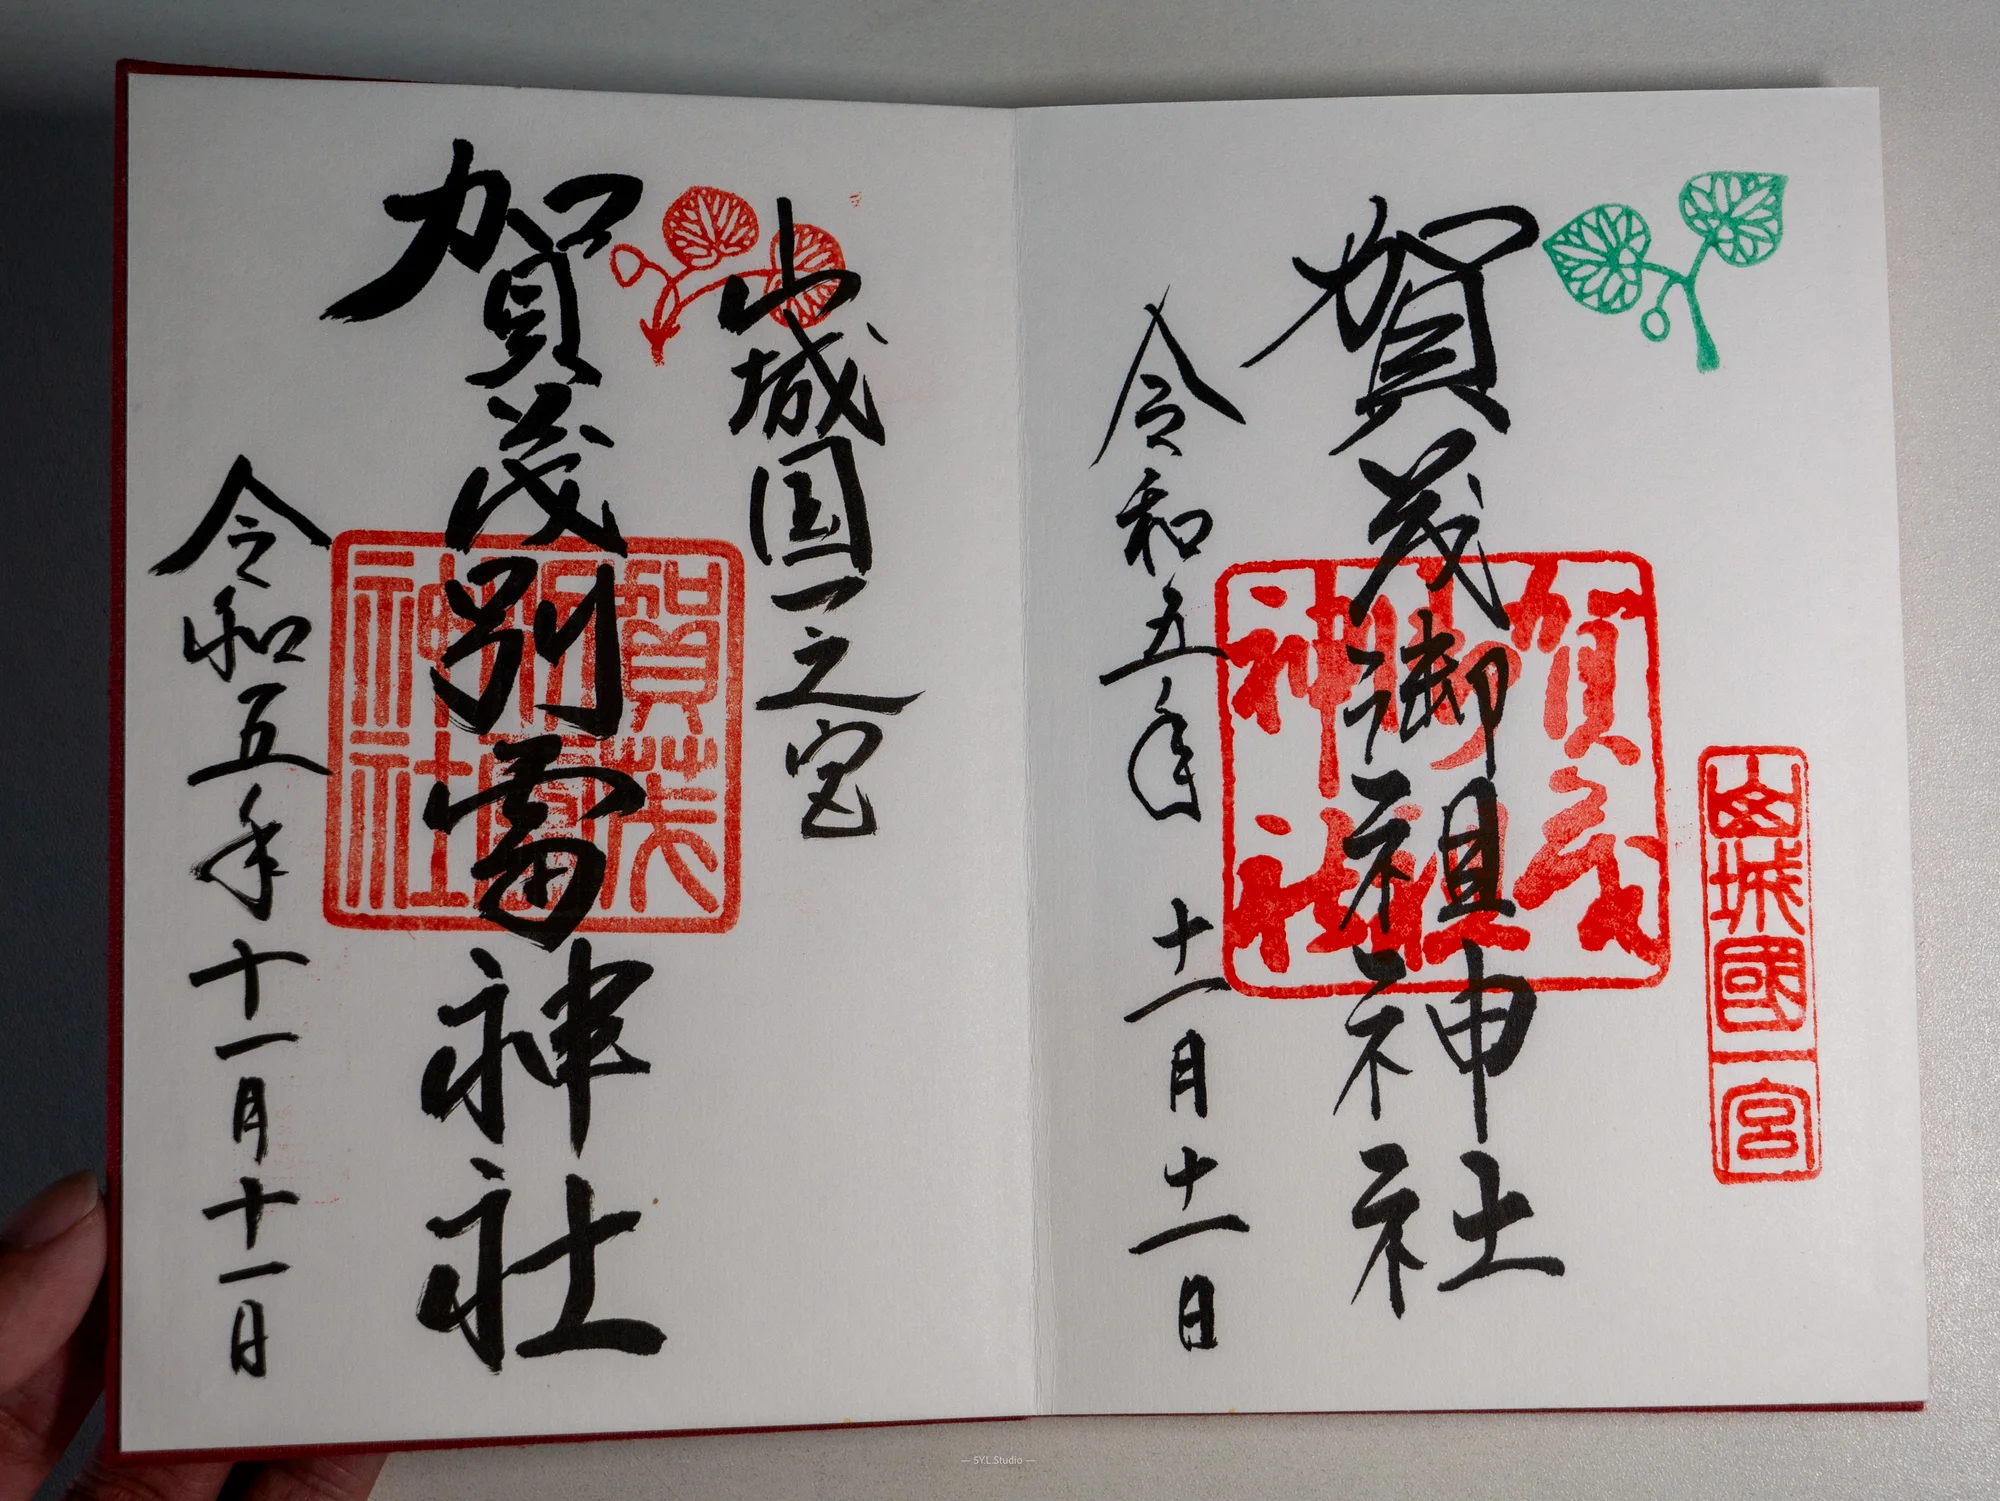 山城國一宮
賀茂御祖神社
賀茂
御祖
神社
令和五年十一月十一日
山城国一之宮
賀茂別雷神社
賀茂
別雷
神社
令和五年十一月十一日
— SYL.Studio —